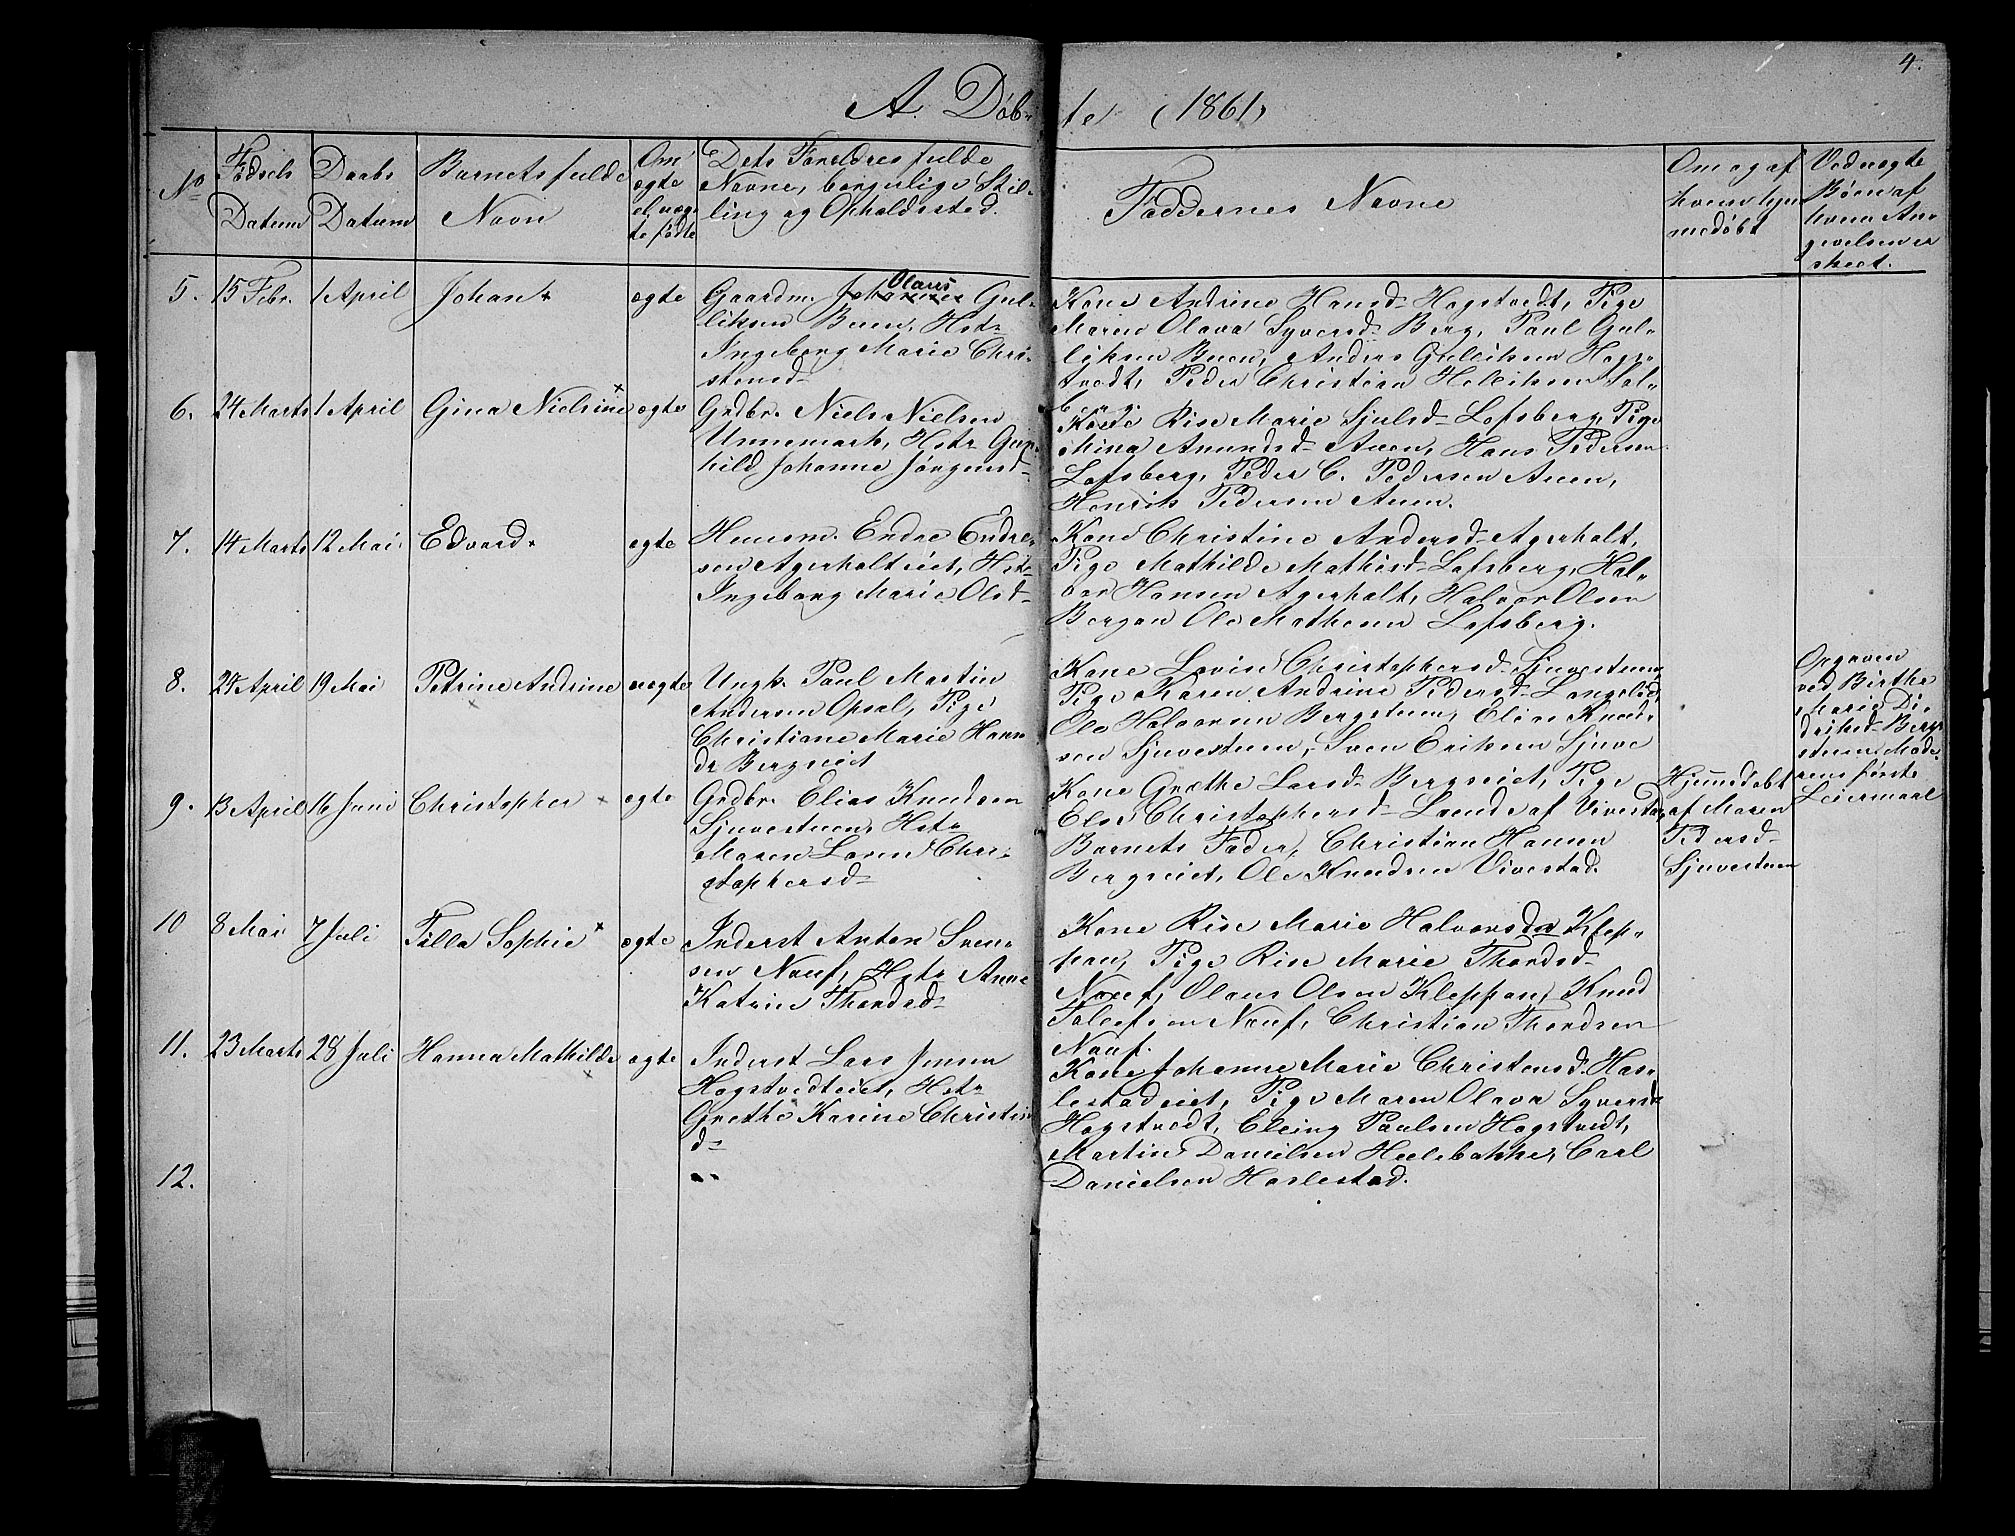 4.
A. Døb-
te (1861)
No
Fødsels
Datum
Daabs
Datum
Barnets fulde
Navn
Om
ægte
el. uæg-
te fødte
Dets Forældres fulde
Navne, borgerlige Stil-
ling og Opholdssted.
Faddernes Navne
Om og af
hvem hjem-
medøbt
Ved uægte
Børn af
hvem An-
givelsen er
skeet.
5. 15 Febr. 1 April Johan ægte
Gaardm. Johannes Olaus Gul-
liksen Buen, Hstr
Ingeborg Marie Chri-
stensd
Kone Andrine Hansd Hagstvedt, Pige
Maren Olava Syversd Berg, Paul Gul-
liksen Buen, Anders Gulliksen Hags-
tvedt, Peder Christian Helliksen Sol-
berg.
6. 24 Marts 1 April Gina Nielsine ægte
Grdbr. Niels Nielsen
Unnemark, Hstr Gun-
hild Johanne Jørgensd
Kone Rise Marie Sjulsd Lofsberg, Pige
Mina Amundsd Auen, Hans Pedersen
Lofsberg, Peder C. Pedersen Auen,
Henrik Pedersen Auen.
7. 14 Marts 12 Mai Edvard ægte
Huusm. Endre Endre-
sen Agerholteiet, Hstr
Ingeborg Marie Olsd
Kone Christine Andersd Agerholt,
Pige Mathilde Mathisd Lofsberg, Hal-
vor Hansen Agerholt, Halvor Olsen
Bergan Ole Mathesen Lofsberg.
8. 20 April 19 Mai Petrine Andrine uægte
Ungk. Paul Martin
Andersen Opsal, Pige
Christiane Marie Hans-
dr Bergeiet
Kone Lovise Christophersd Sjuvestuen,
Pige Karen Andrine Pedersd Langelid,
Ole Halvorsen Bergstuen, Elias Knud-
sen Sjuvestuen, Sven Eriksen Sjuve
Opgaven
ved Birthe
Marie Di-
driksd Berg-
stuen. Mode-
rens første
Leiermaal
9. 13 April 16 Juni Christopher ægte
Grdbr. Elias Knudsen
Sjuvestuen, Hstr
Maren Lovise Chri-
stophersd
Kone Grethe Larsd Bergeiet, Pige
Else Christophersd Lunde af Vivestad,
Barnets Fader, Christian Hansen
Bergeiet, Ole Knudsen Vivestad.
Hjemmedøbt
af Maren
Pedersd
Sjuvestuen
10 8 Mai 7 Juli Tilla Sophie ægte
Inderst Anton Sven-
sen Nauf, Hstr Anne
Katrine Thordsd
Kone Rise Marie Halvorsdr Klep-
pan, Pige Rise Marie Thordsd
Nauf, Olaus Olsen Kleppan, Knud
Tollefsen Nauf, Christian Thordsen
Nauf.
11. 23 Marts 28 Juli Hanna Mathilde ægte
Inderst Lars Jensen
Hagstvedteiet, Hstr
Grethe Karine Christens
d
Kone Johanne Marie Christensd Has-
lestadeiet, Pige Maren Olava Syversd
Hagstvedt, Elling Paulsen Hagstvedt,
Martin Danielsen Heelebakke, Carl
Danielsen Haslestad.
12.